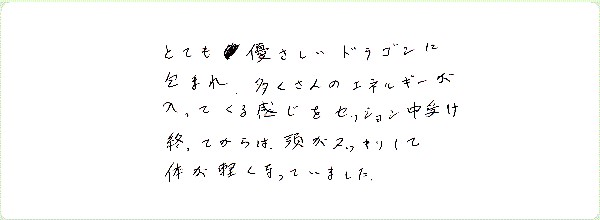 とても優さしいドラゴンに
包まれ、多くさんのエネルギーが
入ってくる感じをセッション中受け
終ってからは、頭がスッキリして
体が軽くなっていました。